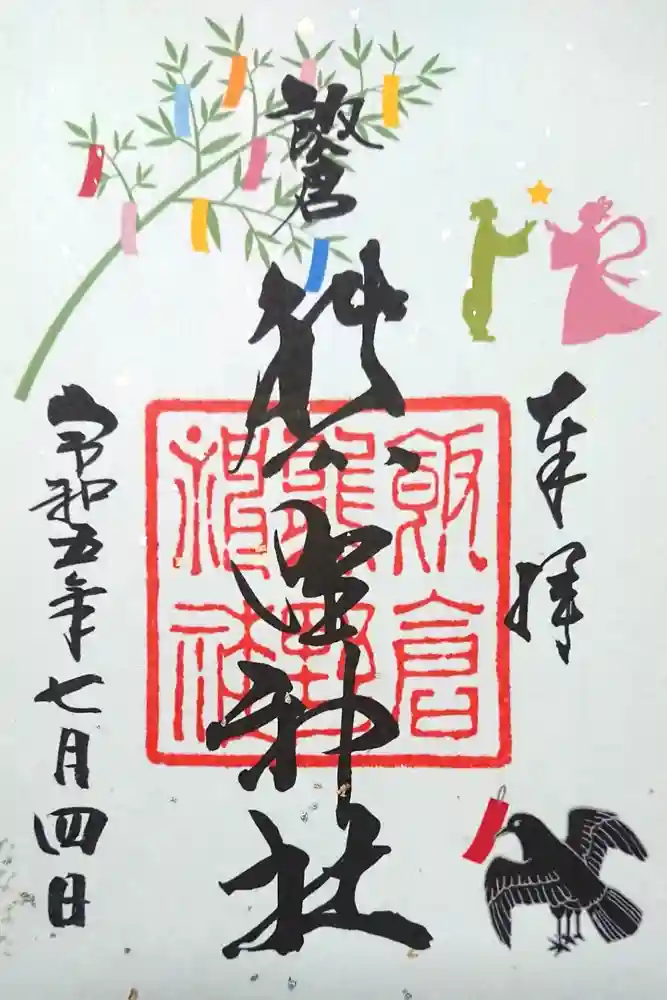 奉拝
飯倉
熊野神社
飯倉
熊野
神社
令和五年七月四日